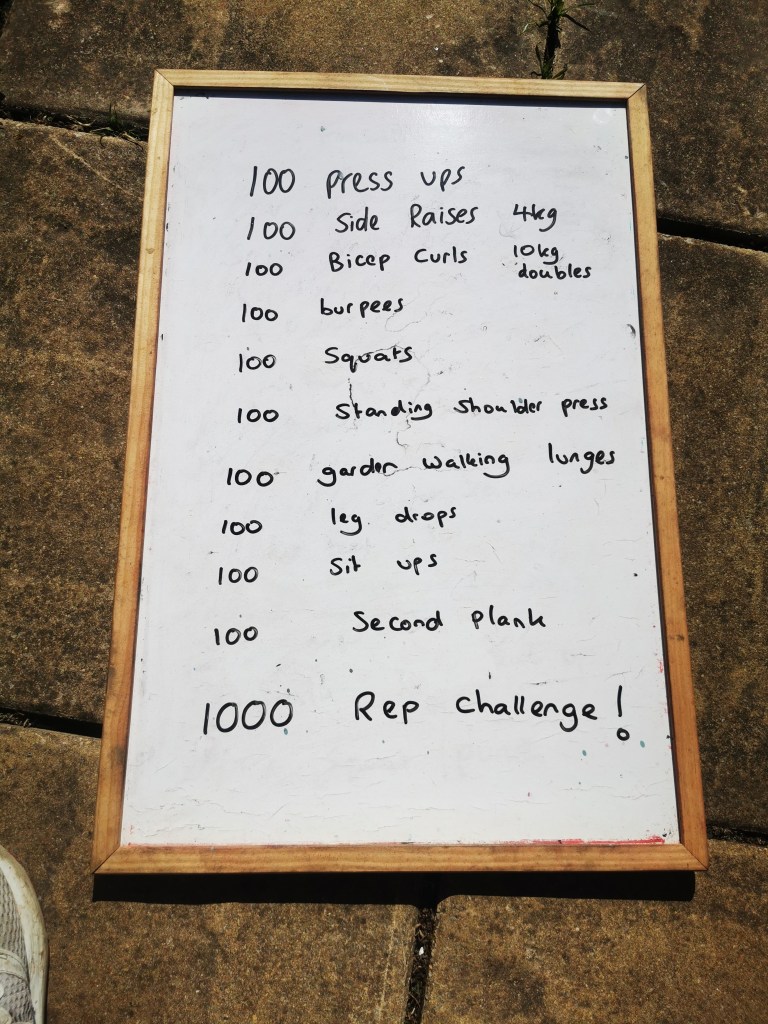 100 press ups
100 Side Raises 4kg
100 Bicep Curls 10kg
doubles
100 burpees
100 Squats
100 Standing Shoulder press
100 garden walking lunges
100 leg drops
100 Sit ups
100 Second plank
1000 Rep Challenge!